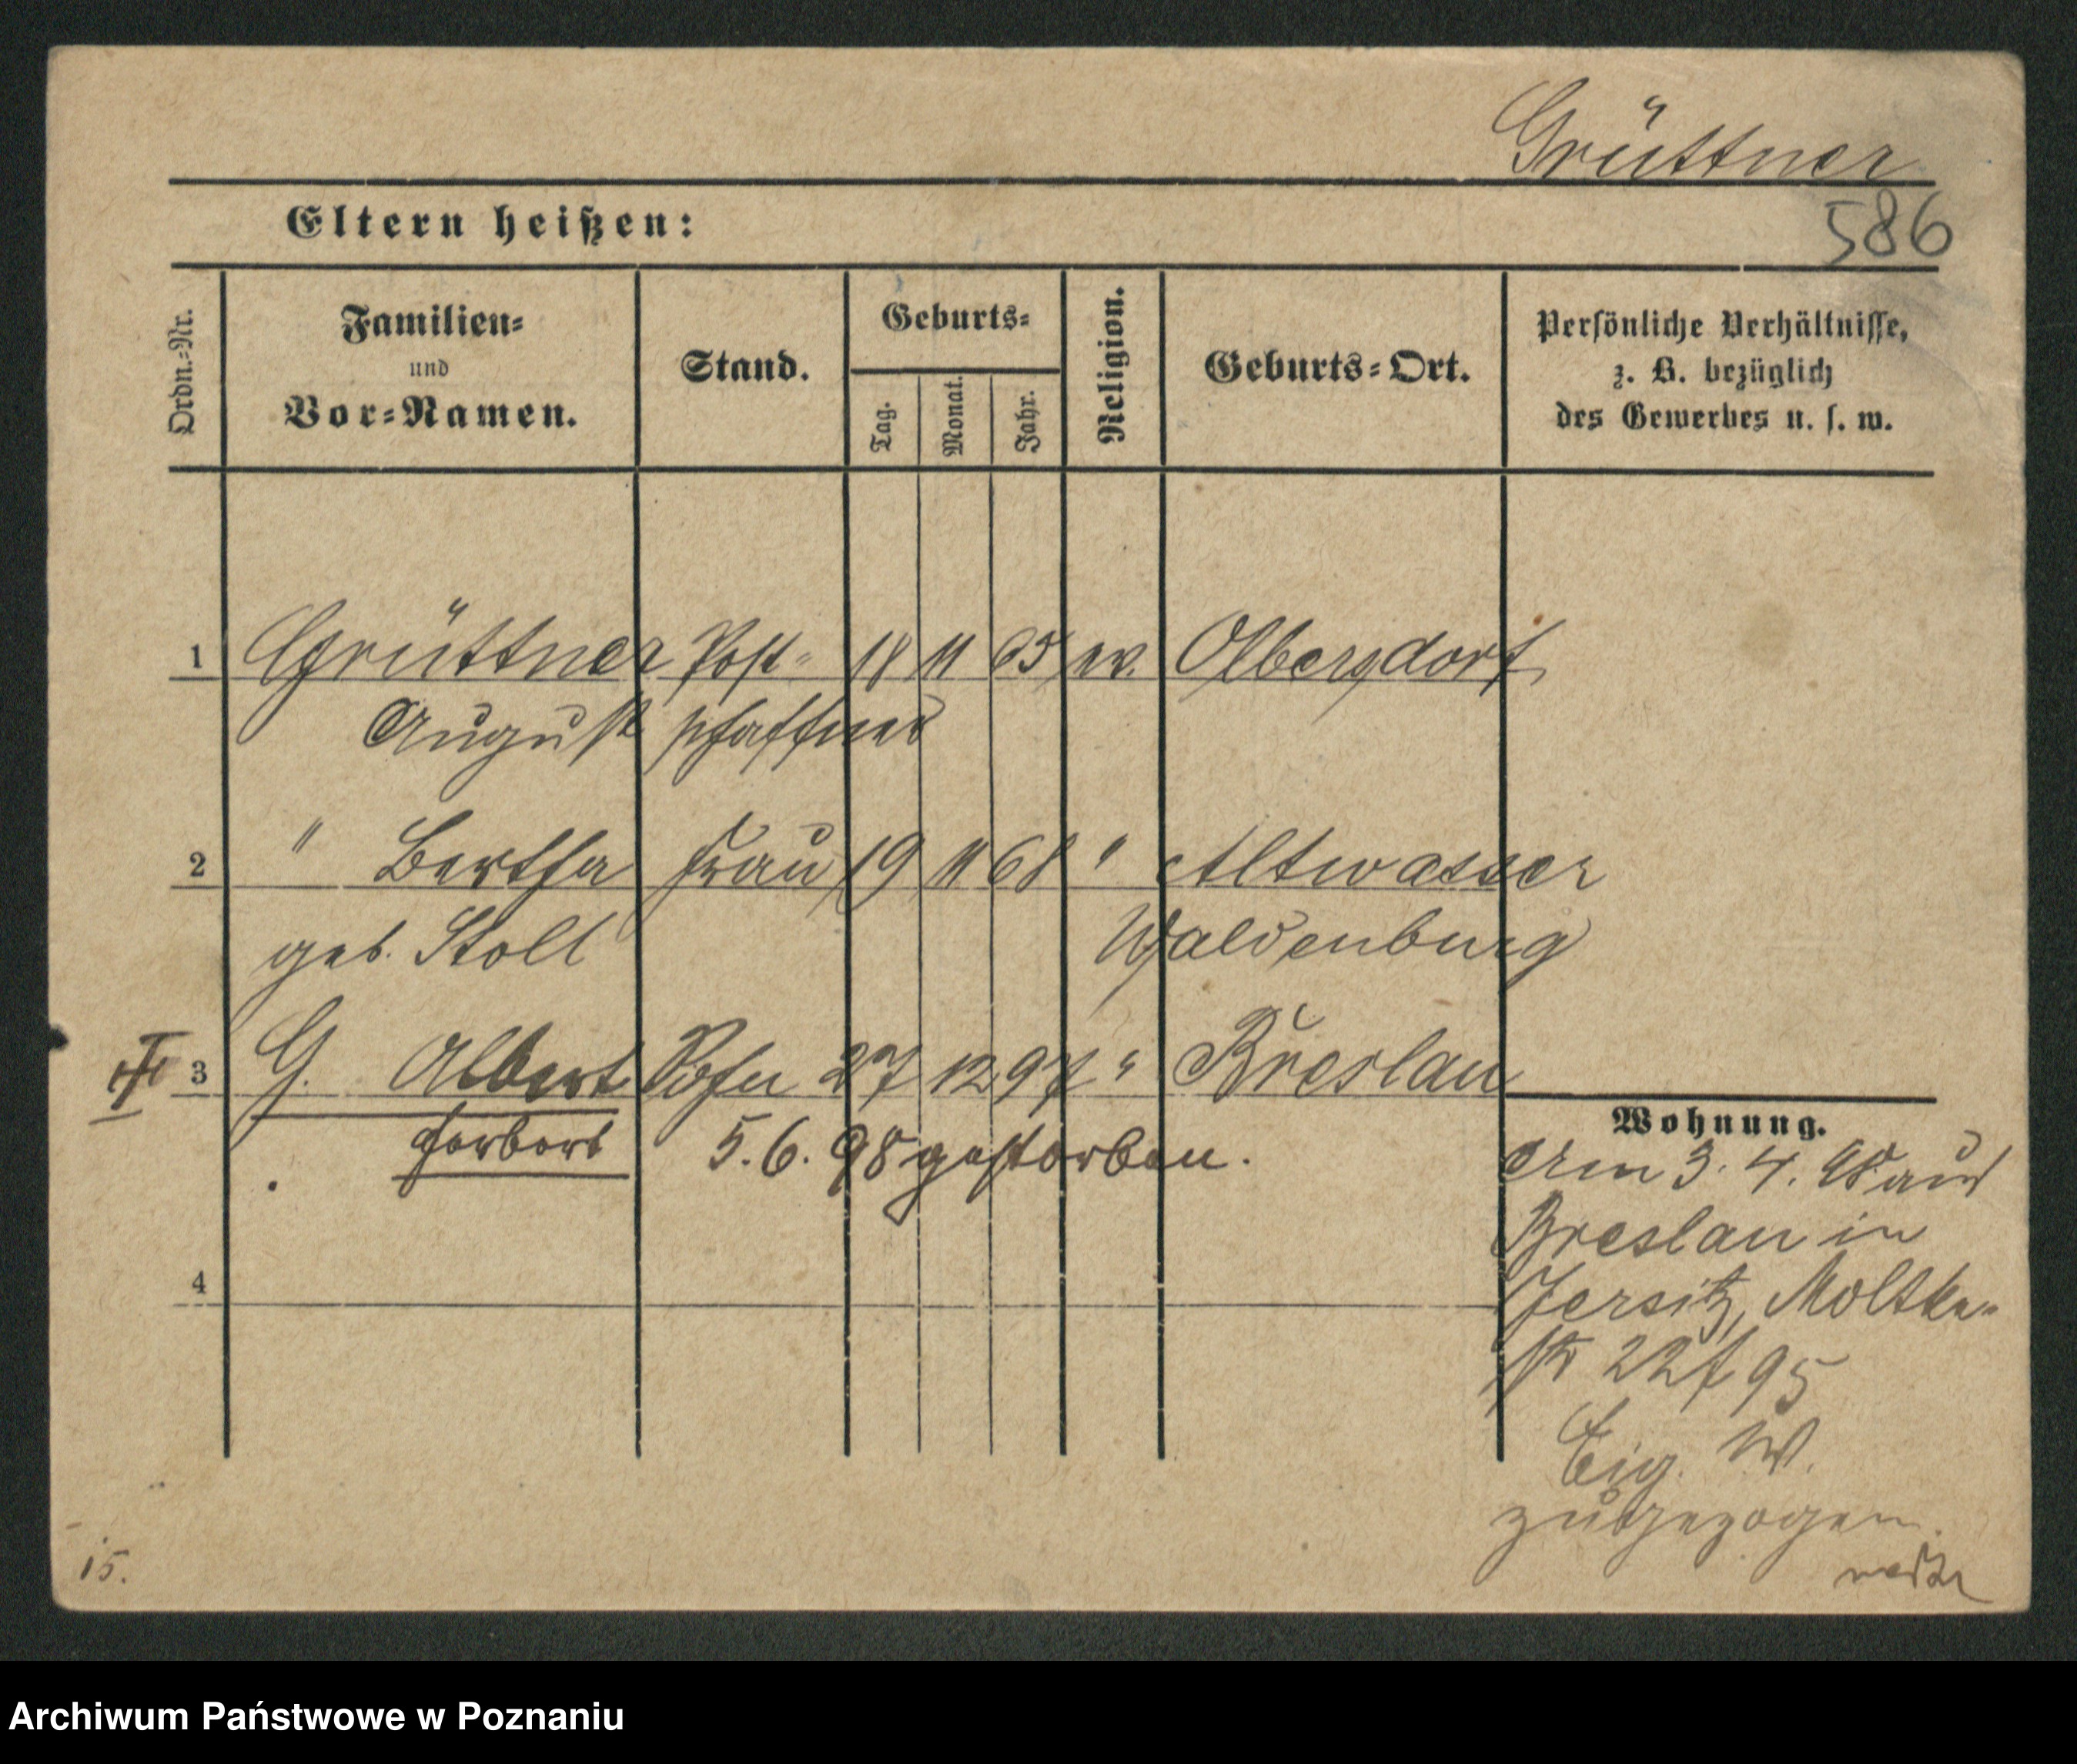 Grüttner
586
Eltern heißen:
Ordn.-Nr.
Familien- und Vor-Namen.
Stand.
Geburts-
Tag.
Monat.
Jahr.
Religion.
Geburts-Ort.
Persönliche Verhältnisse,
z. B. bezüglich
des Gewerbes u. s. w.
1 Grüttner Post- 18 11 65 ev. Olbersdorf
August schaffner
2 " Bertha Frau 19 11 68 " Altwasser
geb. Stoll Waldenburg
3 G. Albert Sohn 27 12 97 " Breslau
Herbert 5. 6. 98 gestorben.
4
Wohnung.
Am 3. 4. 98 aus
Breslau in
Jersitz, Moltke-
str 22 f 95
Eig. W.
zugezogen.
15.
Archiwum Państwowe w Poznaniu